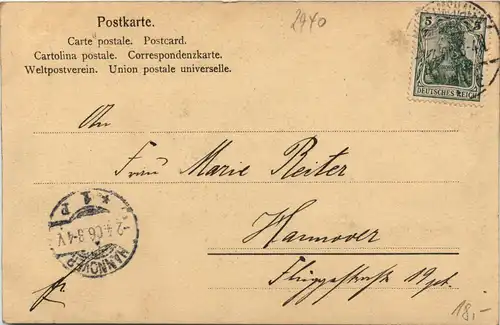 Postkarte.
Carte postale. Postcard.
Cartolina postale. Correspondenzkarte.
Weltpostverein. Union postale universelle.
2440
5 5
DEUTSCHES REICH
An
Frau Marie Reiter
Hannover
19
HANNOVER
* 1 P
2.4.06.3-4V.
18,-